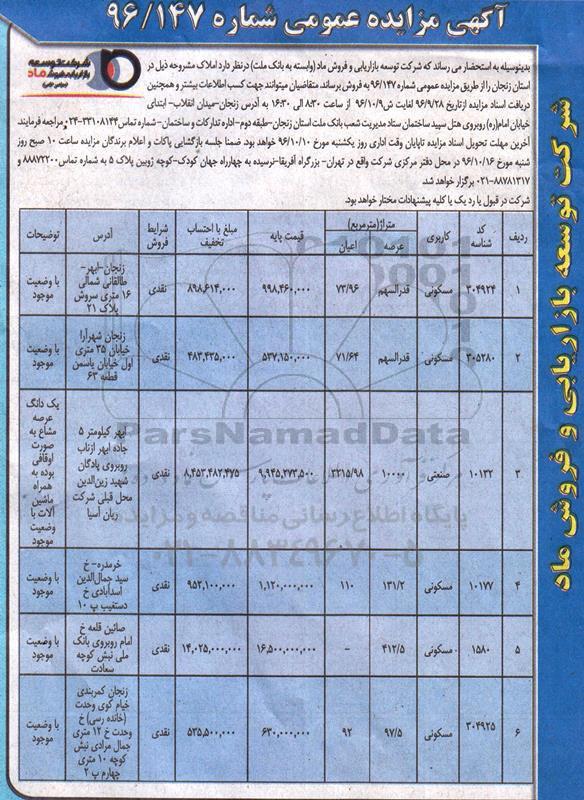 آگهی مزایده عمومی شماره ۹۶/۱۴۷
شرکت توسعه
بازاریابی و فروش ماد
(سهامی خاص)
بدینوسیله به استحضار می رساند که شرکت توسعه بازاریابی و فروش ماد (وابسته به بانک ملت) درنظر دارد املاک مشروحه ذیل در
استان زنجان را از طریق مزایده عمومی شماره ۹۶/۱۴۷ به فروش برساند. متقاضیان میتوانند جهت کسب اطلاعات بیشتر و همچنین
دریافت اسناد مزایده ازتاریخ ۹۶/۹/۲۸ لغایت ش ۹۶/۱۰/۹ از ساعت ۸:۳۰ الی ۱۶:۳۰ به آدرس زنجان-میدان انقلاب- ابتدای
خیابان امام(ره) روبروی هتل سپید ساختمان ستاد مدیریت شعب بانک ملت استان زنجان-طبقه دوم-اداره تدارکات و ساختمان- شماره تماس ۳۳۱۰۸۱۴۴-۰۲۴ مراجعه فرمایند.
آخرین مهلت تحویل اسناد مزایده تاپایان وقت اداری روز یکشنبه مورخ ۹۶/۱۰/۱۰ خواهد بود. ضمنا جلسه بازگشایی پاکات و اعلام برندگان مزایده ساعت ۱۰ صبح روز
شنبه مورخ ۹۶/۱۰/۱۶ در محل دفتر مرکزی شرکت واقع در تهران- بزرگراه آفریقا-نرسیده به چهارراه جهان کودک-کوچه زوبین پلاک ۵ به شماره تماس ۸۸۸۷۲۲۰۰ و
۸۸۷۸۱۳۱۷-۰۲۱ برگزار خواهد شد.
شرکت در قبول یا رد یک یا کلیه پیشنهادات مختار خواهد بود.
ردیف | کد شناسه | کاربری | متراژ(مترمربع) عرصه | اعیان | قیمت پایه | مبلغ با احتساب تخفیف | شرایط فروش | آدرس | توضیحات
۱ | ۳۰۴۹۲۴ | مسکونی | قدرالسهم | ۷۳/۹۶ | ۹۹۸,۴۶۰,۰۰۰ | ۸۹۸,۶۱۴,۰۰۰ | نقدی | زنجان-ابهر- طالقانی شمالی ۱۶ متری سروش پلاک ۲۱ | با وضعیت موجود
۲ | ۳۰۵۲۸۰ | مسکونی | قدرالسهم | ۷۱/۶۴ | ۵۳۷,۱۵۰,۰۰۰ | ۴۸۳,۴۳۵,۰۰۰ | نقدی | زنجان شهرآرا خیابان ۳۵ متری اول خیابان یاسمن قطعه ۶۳ | با وضعیت موجود
۳ | ۱۰۱۳۲ | صنعتی | ۱۰۰۰۰ | ۳۲۱۵/۹۸ | ۹,۹۴۵,۲۷۳,۵۰۰ | ۸,۴۵۳,۴۸۲,۴۷۵ | نقدی | ابهر کیلومتر ۵ جاده ابهر ازناب روبروی پادگان شهید زین‌الدین محل قبلی شرکت ریان آسیا | یک دانگ عرصه مشاع به صورت اوقافی بوده به همراه ماشین آلات با وضعیت موجود
۴ | ۱۰۱۷۷ | مسکونی | ۱۳۱/۲ | ۱۱۰ | ۱,۱۲۰,۰۰۰,۰۰۰ | ۹۵۲,۱۰۰,۰۰۰ | نقدی | خرمدره- خ سید جمال‌الدین اسدآبادی خ دستغیب پ ۱۰ | با وضعیت موجود
۵ | ۱۵۸۰ | مسکونی | ۴۱۲/۵ | - | ۱۶,۵۰۰,۰۰۰,۰۰۰ | ۱۴,۰۲۵,۰۰۰,۰۰۰ | نقدی | صائین قلعه خ امام روبروی بانک ملی نبش کوچه سعادت | با وضعیت موجود
۶ | ۳۰۴۹۲۵ | مسکونی | ۹۷/۵ | ۹۲ | ۶۳۰,۰۰۰,۰۰۰ | ۵۳۵,۵۰۰,۰۰۰ | نقدی | زنجان کمربندی خیام کوی وحدت (خانده رسی) خ وحدت خ ۱۲ متری جمال مرادی نبش کوچه ۱۰ متری چهارم پ ۲ | با وضعیت موجود
شرکت توسعه بازاریابی و فروش ماد
ParsNamadData
پایگاه اطلاع رسانی مناقصه و مزایده
۰۲۱-۸۸۳۴۹۶۷۰-۵